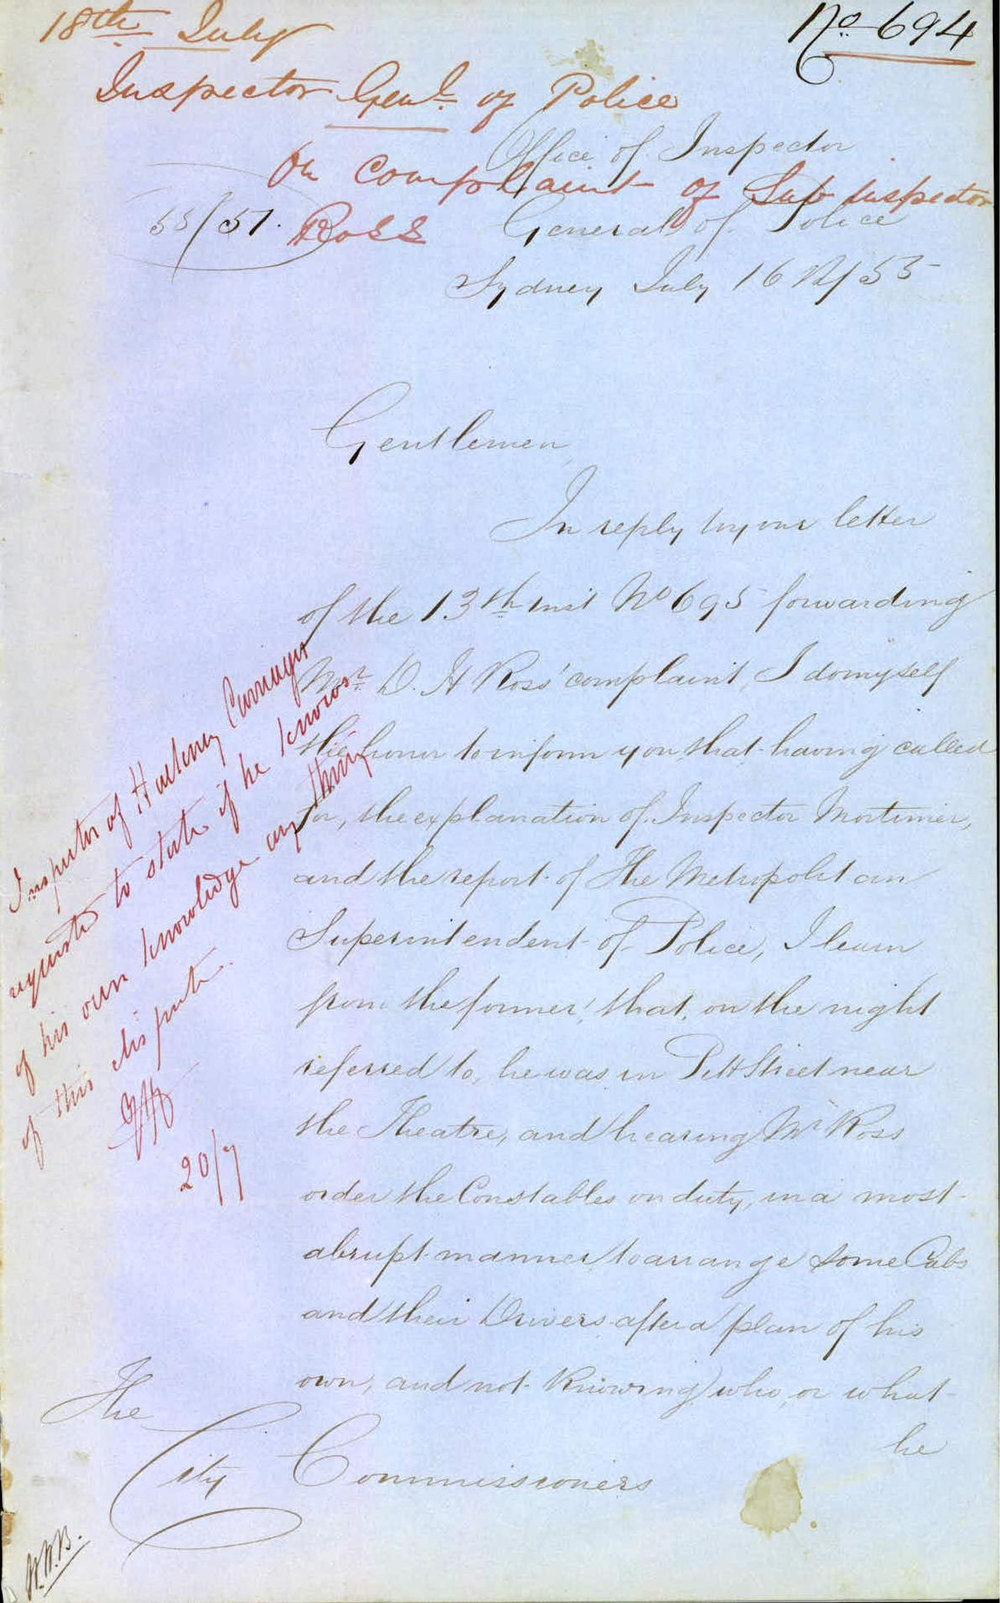 18th July
No 694
Inspector Genl of Police
On complaint of Sub inspector
Ross
Office of Inspector
General of Police
55/57.
Sydney July 16th/55
Gentlemen,
In reply to your letter
of the 13th inst No 695 forwarding
Mr. D. H Ross' complaint, I do myself
the honor to inform you that having called
for, the explanation of Inspector Mortimer,
and the report of The Metropolitan
Superintendent of Police, I learn
from the former, that, on the night
referred to, he was in Pitt Street near
the Theatre, and hearing Mr Ross
order the Constables on duty, in a most
abrupt manner to arrange some Cabs
and their Drivers after a plan of his
own, and not knowing who, or what
he
The
City Commissioners
Inspector of Hackney Carriages
requested to state if he knows
of his own knowledge any thing
of this dispute.
20/7